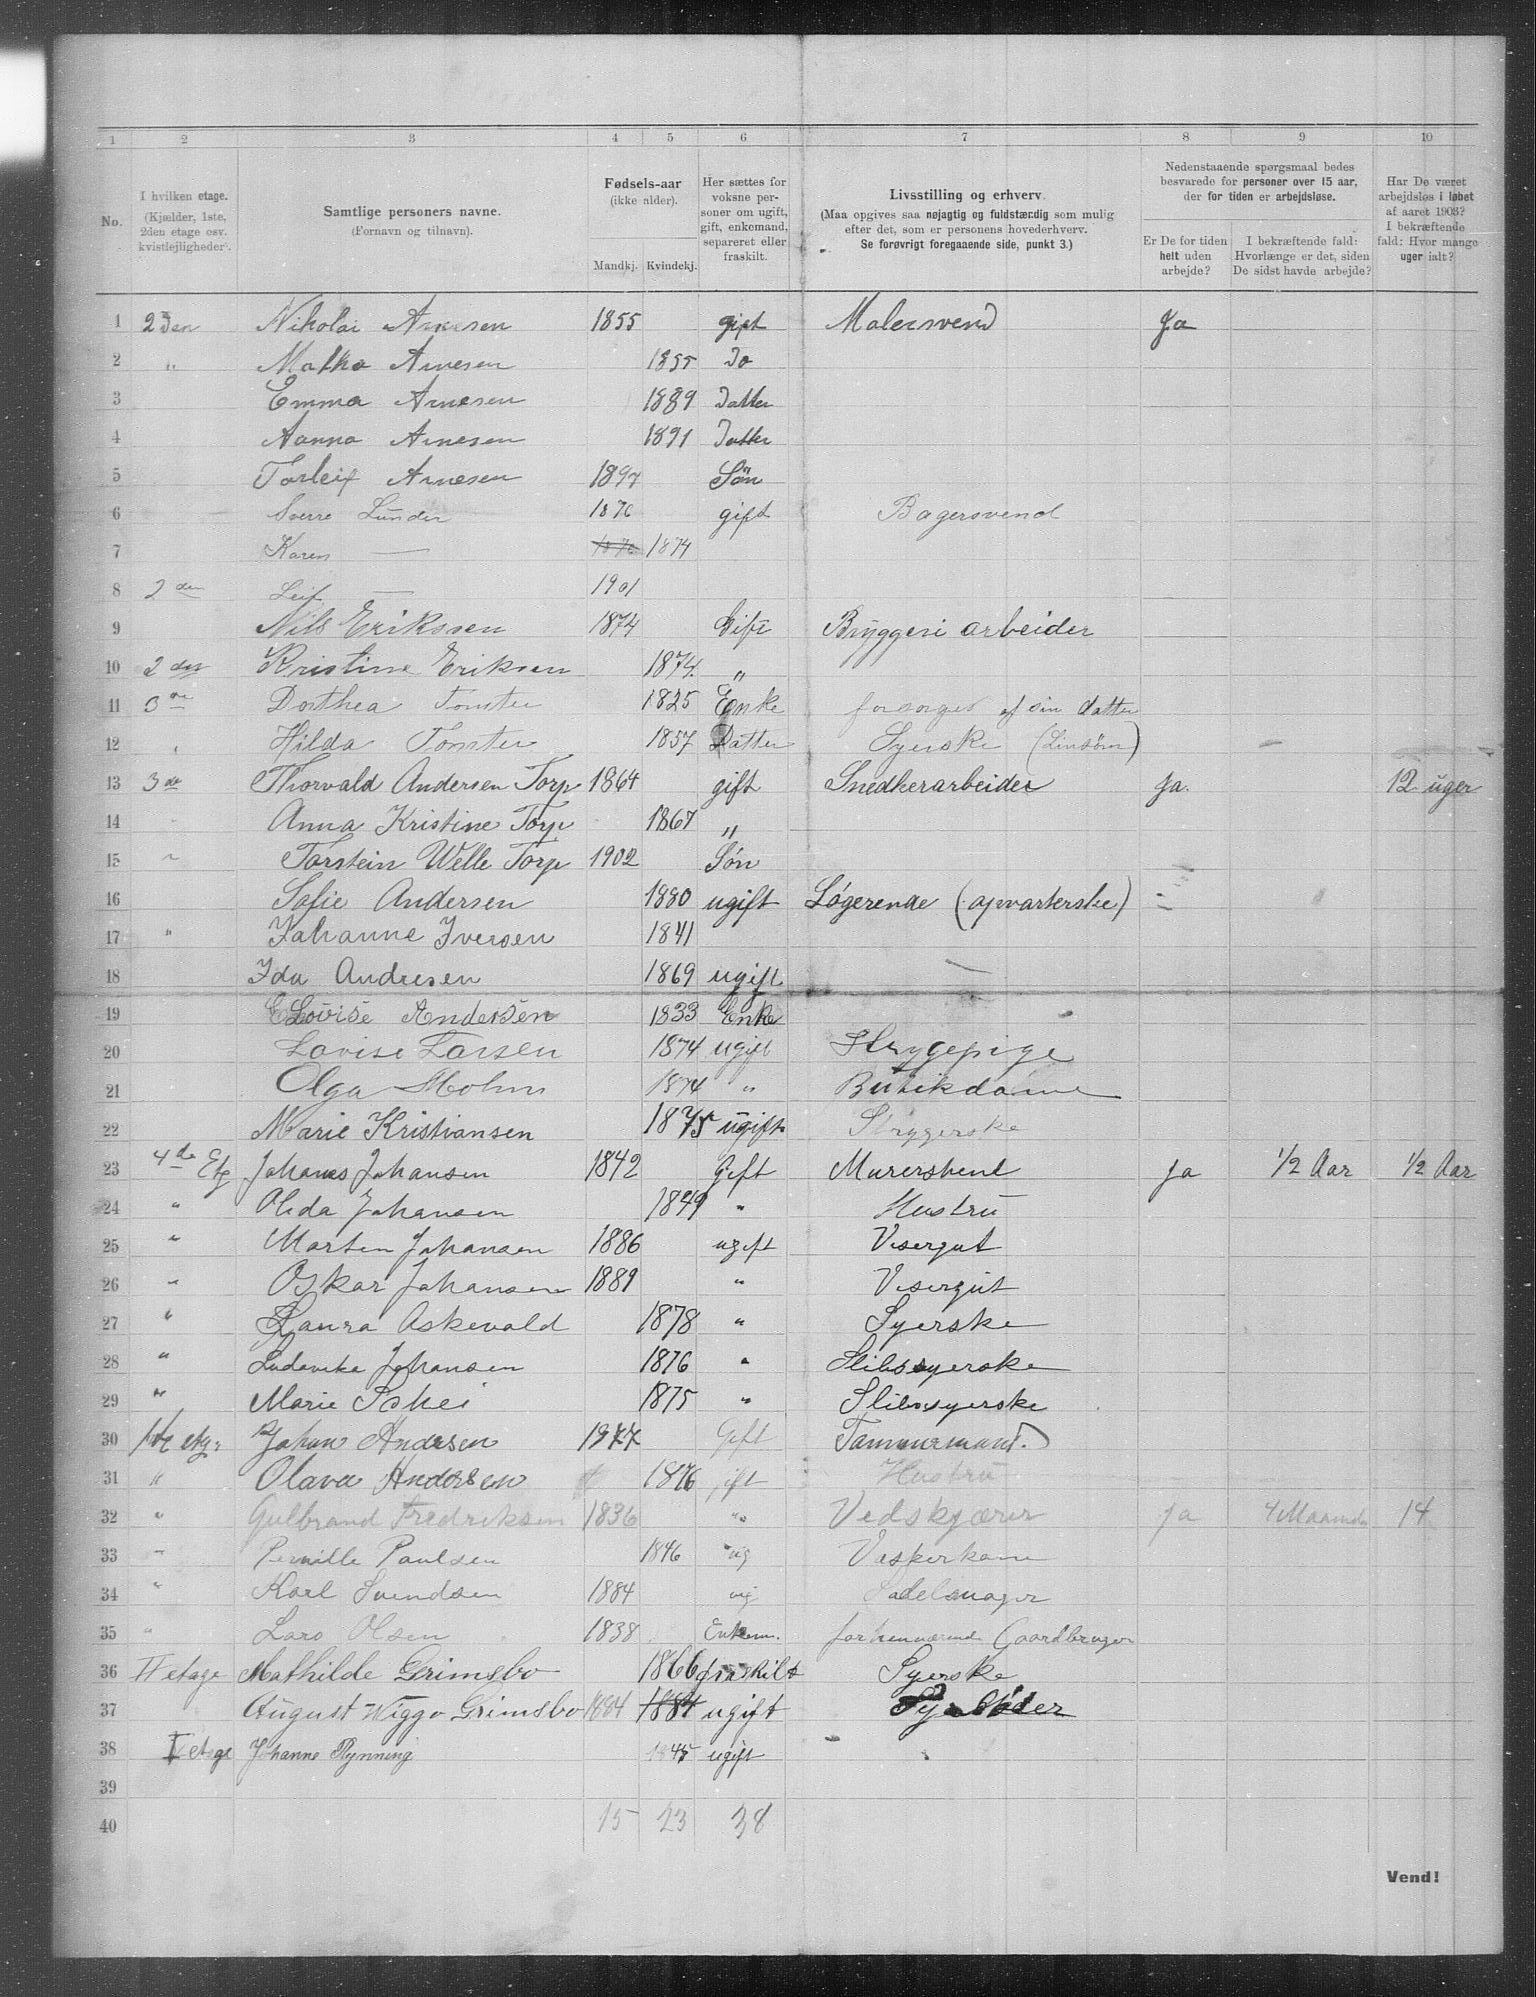 1 2 3 4 5 6 7 8 9 10
No.
I hvilken etage. (Kjælder, 1ste, 2den etage osv. kvistlejligheder).
Samtlige personers navne. (Fornavn og tilnavn).
Fødsels-aar (ikke alder). Mandkj. Kvindekj.
Her sættes for voksne personer om ugift, gift, enkemand, separeret eller fraskilt.
Livsstilling og erhverv. (Maa opgives saa nøjagtig og fuldstændig som mulig efter det, som er personens hovederhverv. Se forøvrigt foregaaende side, punkt 3.)
Nedenstaaende spørgsmaal bedes besvarede for personer over 15 aar, der for tiden er arbejdsløse.
Er De for tiden helt uden arbejde?
I bekræftende fald: Hvorlænge er det, siden De sidst havde arbejde?
Har De været arbejdsløs i løbet af aaret 1903? I bekræftende fald: Hvor mange uger ialt?
1 2den Nikolai Arnesen 1855 gift Malersvend Ja
2 " Arnesen 1855 Do
3 Emma Arnesen 1889 Datter
4 Arnesen 1891 Datter
5 Torleif Arnesen 1897 Søn
6 Sverre Lunder 1876 gift Bagersvend
7 Karen — 1874
8 2den Leif — 1901
9 Nils Erikssen 1874 Gift Bryggeri arbeider
10 2den Kristine Eriksen 1874. "
11 3die Dorthea 1825 Enke forsørges af sin datter
12 Hilda 1857 Datter Syerske (Linsøm)
13 3de Thorvald Andersen Torp 1864 gift Snedkerarbeider ja. 12 uger
14 Anna Kristine Torp 1867 "
15 " Torstein Welle Torp 1902 Søn
16 Sofie Andersen 1880 ugift Løgerende (opvarterske)
17 " Johanne Iversen 1841
18 Ida Andresen 1869 ugift
19 Lovise Andersen 1833 Enke
20 Lovise Larsen 1874 ugift Strygepige
21 Olga Holm 1874 " Butikdame
22 Marie Kristiansen 1875 ugift Strygerske
23 4de Etg Johanes Johansen 1842 Gift Murersvend ja 1/2 Aar 1/2 Aar
24 " Olida Johansen 1849 " Hustru
25 " Morten Johansen 1886 ugift Visergut
26 " Oskar Johansen 1889 " Visergut
27 " Laura Askevald 1878 " Syerske
28 " Ludovika Johansen 1876 " Slibssyerske
29 " Marie 1875 " Slibssyerske
30 1ste etg. Johan Andersen Gift Tømmermand.
31 " Olava Andersen 1876 gift Hustru
32 " Gulbrand Fredriksen 1836 " Vedskjærer ja 4 Maaneder 14
33 " Pernille Paulsen 1846 ug Vaskerkone
34 " Karl Svendsen 1884 ug Sadelmager
35 " Lars Olsen 1838 Enkem. forhenværend Gaardbruger
36 II etage Mathilde Grimsbo 1866 fraskilt Syerske
37 August Wiggo Grimsbo 1884 1884 ugift
38 I etage Johanne Rynning 1845 ugift
39
40 15 23 38
Vend!